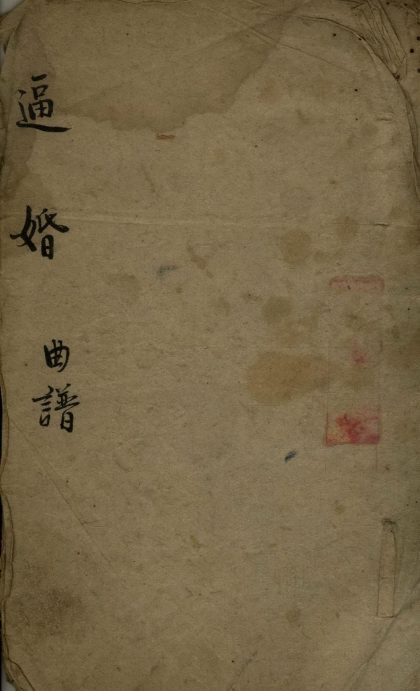 逼婚曲譜